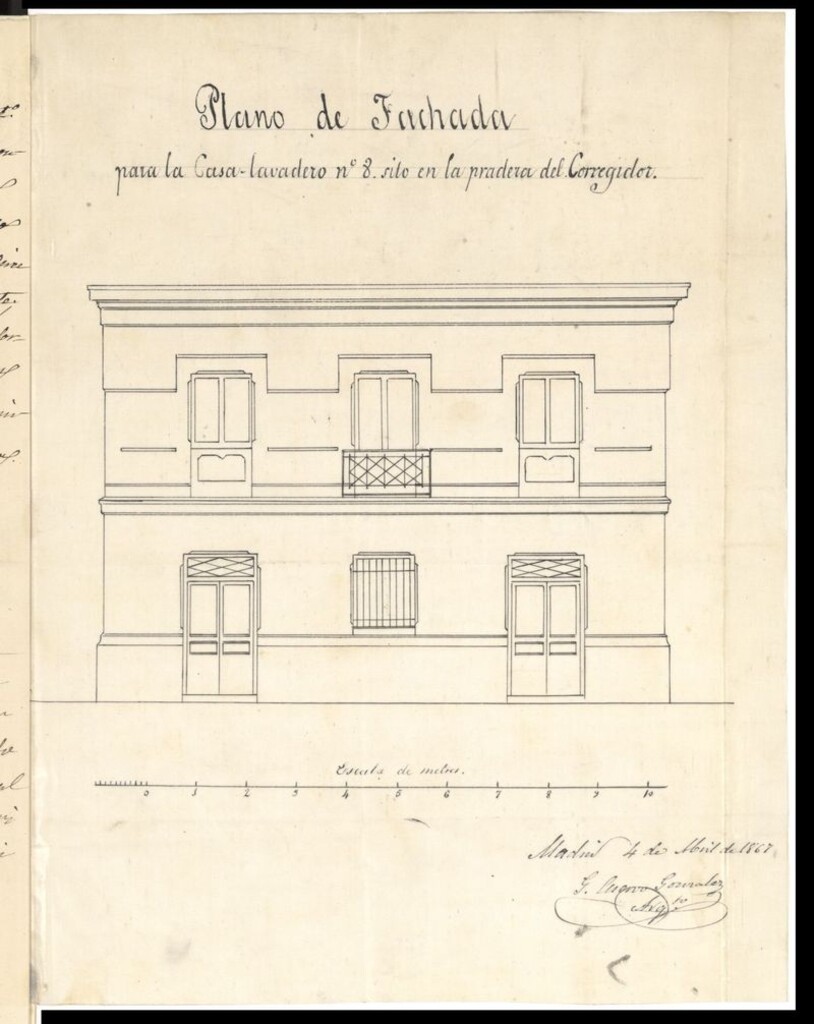 Plano de Fachada
para la Casa-lavadero nº 8. sito en la pradera del Corregidor.
Escala de metros.
0 1 2 3 4 5 6 7 8 9 10
Madrid 4 de Abril de 1867
Gonzalez
Arqto